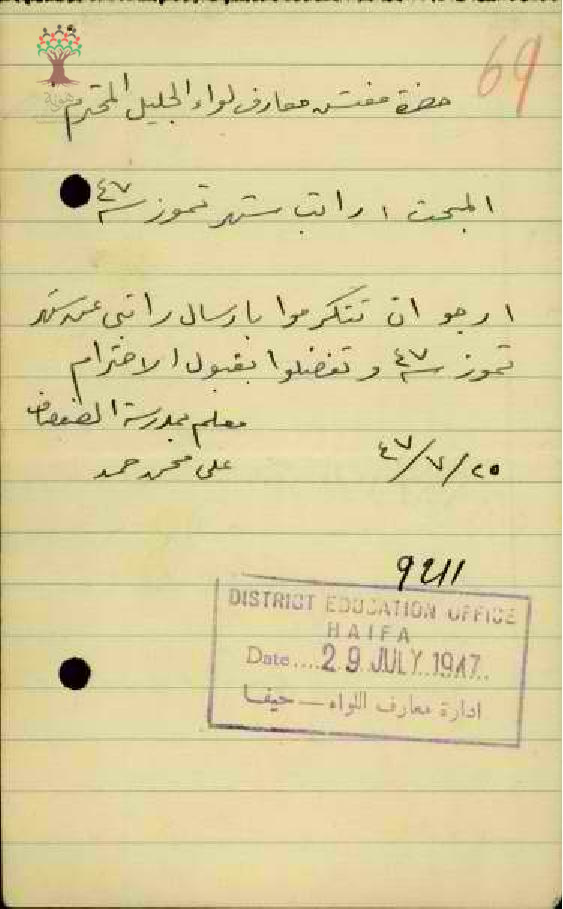 69
حضرة مفتش معارف لواء الجليل المحترم
المبحث : راتب شهر تموز سنة ٤٧
ارجو ان تتكرموا بارسال راتبي عن شهر
تموز سنة ٤٧ وتفضلوا بقبول الاحترام
معلم مدرسة الصفصاف
٢٥/٧/٤٧
علي محمد حمد
9211
DISTRICT EDUCATION OFFICE
HAIFA
Date....29 JULY 1947..
ادارة معارف اللواء — حيفا